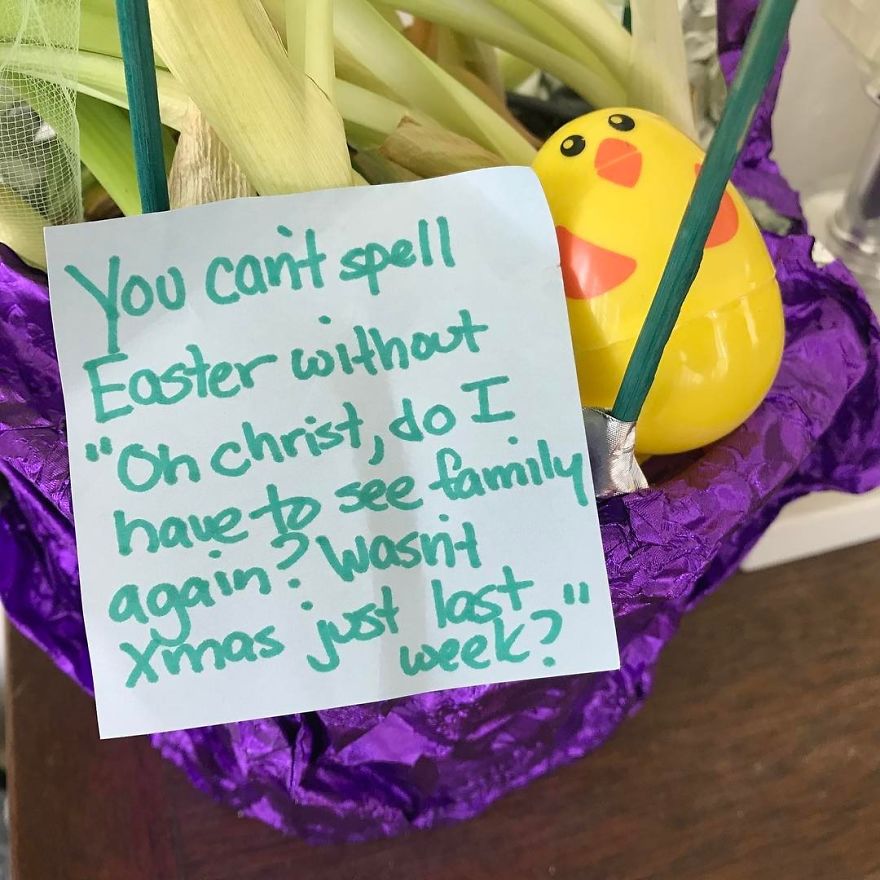 You can't spell
Easter without
"Oh christ, do I
have to see family
again? Wasn't
Xmas just last
week?"